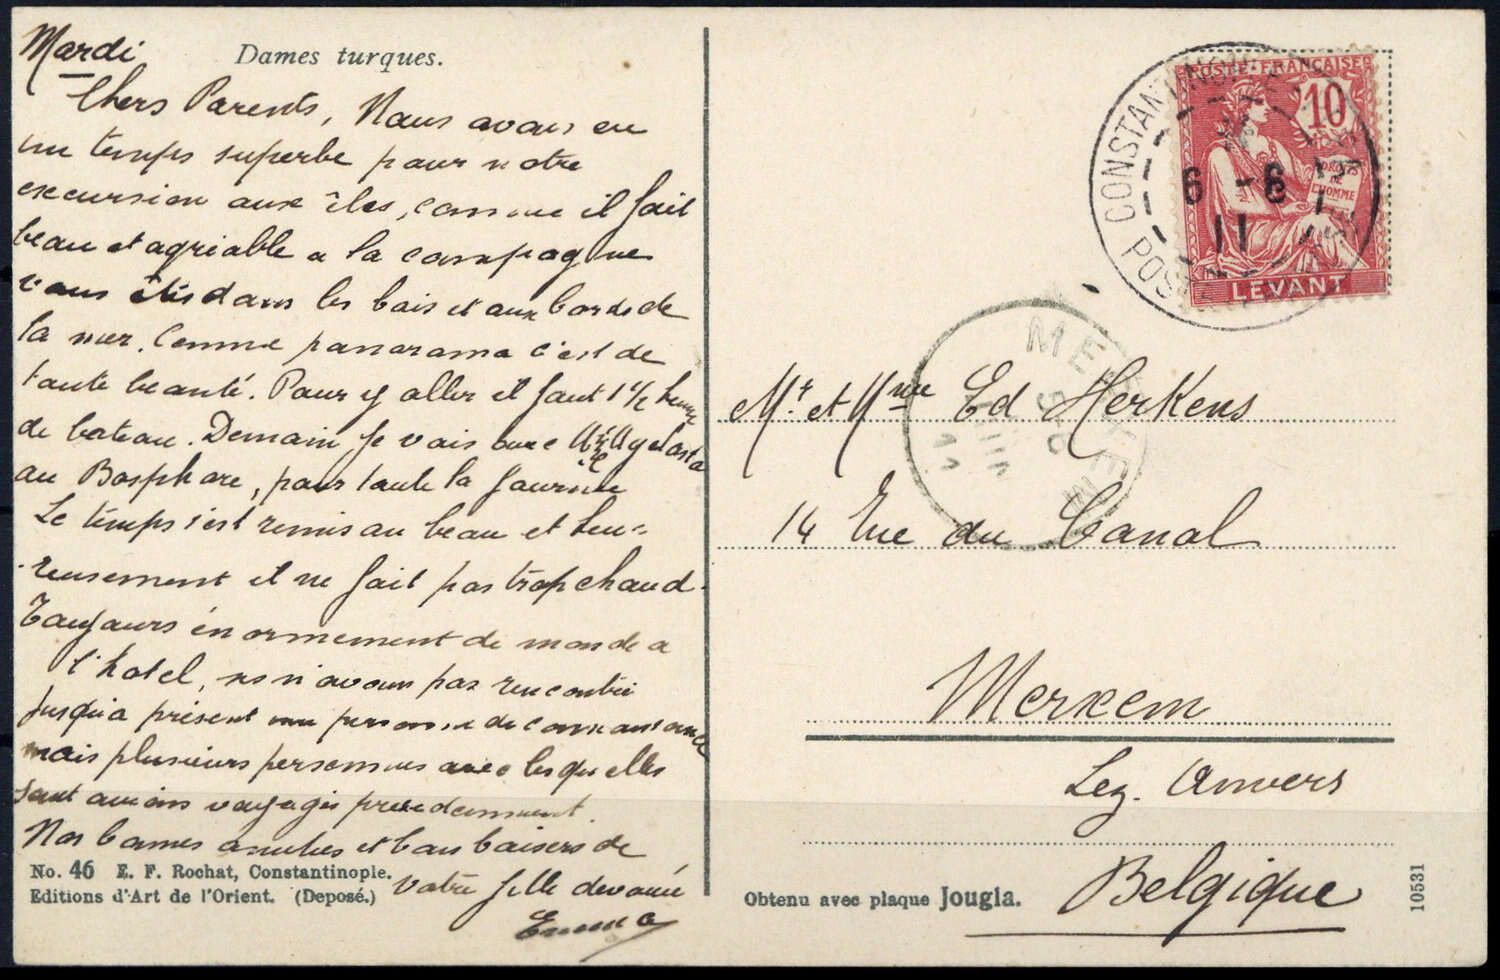 Mardi
Dames turques.
Chers Parents, Nous avons eu
un temps superbe pour notre
excursion aux îles, comme il fait
beau et agréable a la campagne
vous êtes dans les bois et aux bords de
la mer. Comme panorama c'est de
toute beauté. Pour y aller il faut 1 1/2 heure
de bateau. Demain, je vais avec
au Bosphore, pour toute la journée
Le temps s'est remis au beau et heu-
reusement il ne fait pas trop chaud.
Toujours énormement de monde a
l'hotel, ns n'avons pas rencontré
jusqu'a présent une personne de connaissance
mais plusieurs personnes avec lesquelles
sont amions voyagés précedemment.
Nos bonnes amitiés et bons baisers de
votre fille devouée
Emma
No. 46 E. F. Rochat, Constantinople.
Editions d'Art de l'Orient. (Deposé.)
POSTE FRANÇAISE
10
DROITS
DE
L'HOMME
LEVANT
CONSTANTINOPLE
POSTE
6 - 6
11
MERXEM
Mr. et Mme Ed Herkens
14 Rue du Canal
Merxem
Lez. Anvers
Belgique
Obtenu avec plaque Jougla.
10531